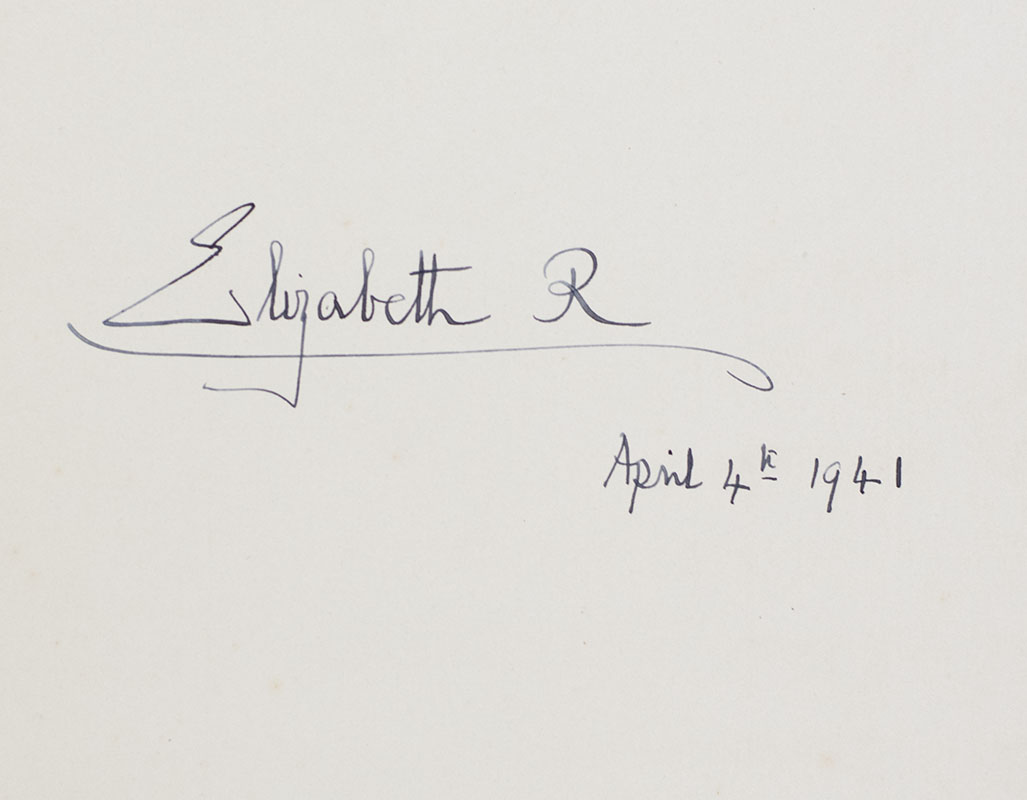 Elizabeth R
April 4th 1941